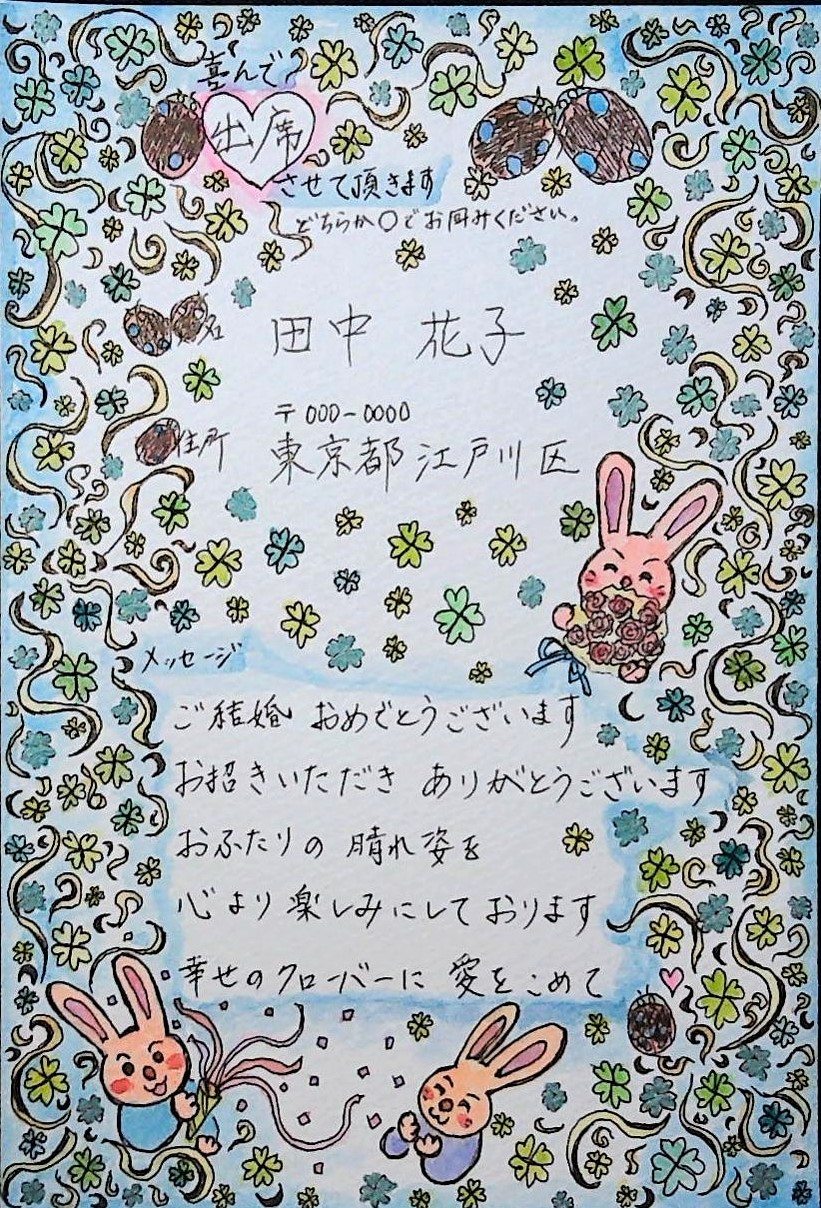 喜んで
出席
させて頂きます
どちらか〇でお囲みください。
名
田中 花子
〒000-0000
住所
東京都江戸川区
メッセージ
ご結婚 おめでとうございます
お招きいただき ありがとうございます
おふたりの 晴れ姿を
心より 楽しみにしております
幸せのクローバーに 愛をこめて